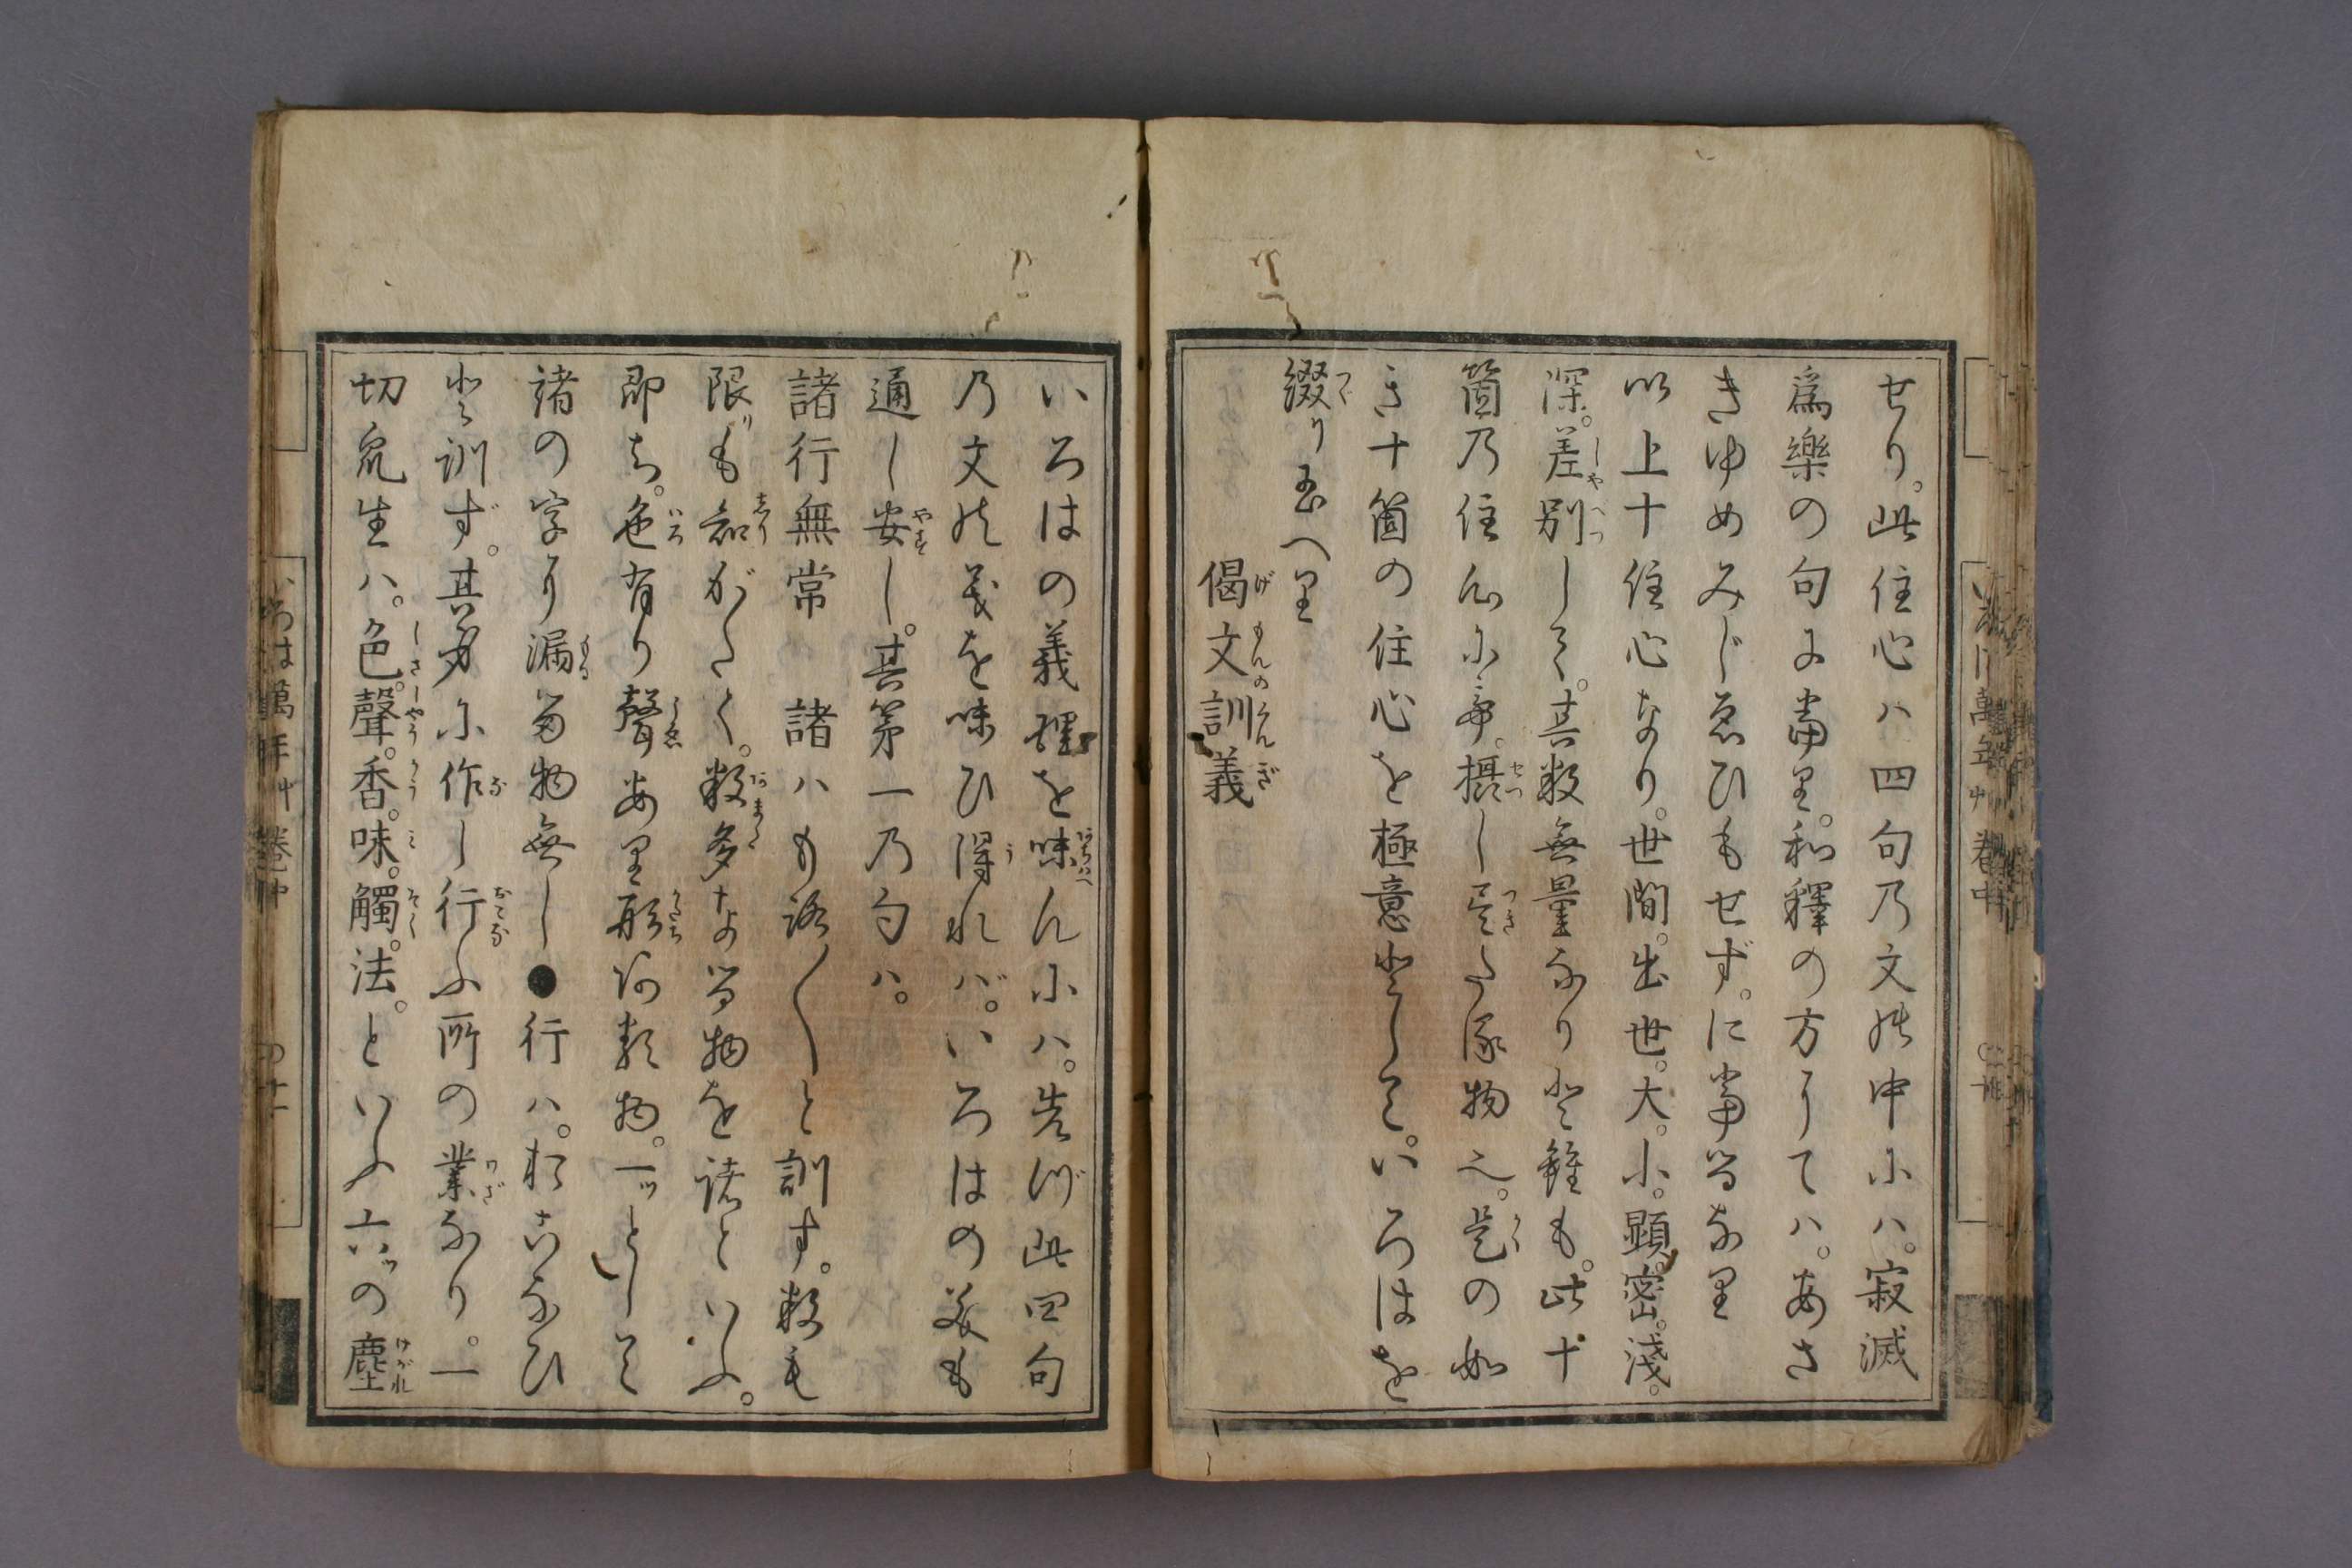 せり。此住心ハ四句乃文の中にハ。寂滅
爲樂の句に當里。和釋の方にてハ。あさ
きゆめみじゑひもせず。に當るなり
以上十住心なり。世間。出世。大。小。顕。密。淺。
深。差別して。其数無量なりと雖も。此十
箇乃住心に帝。摂し尽た物也。是の如
き十箇の住心を極意として。いろはを
綴り玉へり
偈文訓義
いろはの義理を味んにハ。先づ此四句
乃文の義を味ひ得れバ。いろはの義も
通し安し。其第一乃句ハ。
諸行無常 諸ハもろ〱と訓す。数も
限りも知がたく。数多なる物を諸といふ。
即ち。色有り聲あり形ある物。一ッとして
諸の字り漏る物無し●行ハ。おこなひ
と訓ず。其身に作し行ふ所の業なり。一
切衆生ハ。色。聲。香。味。觸。法。といふ六ッの塵
いろは萬年艸 巻中